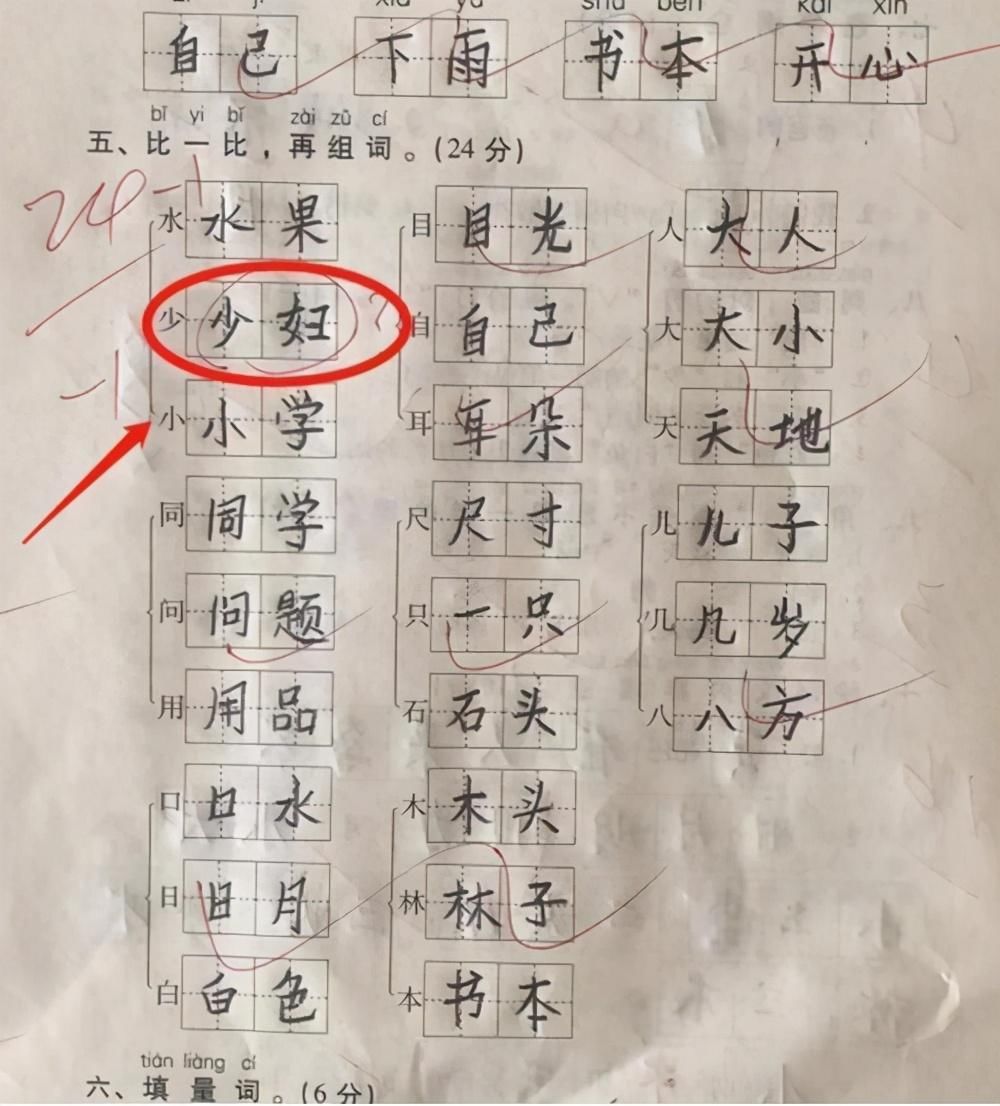 xià yǔ shū běn kāi xīn
自己 下雨 书本 开心
bǐ yi bǐ zài zǔ cí
五、比一比，再组词。(24分)
24-1
水 水果 目 目光 人 大人
少 少妇 ? 自 自己 大 大小
-1
小 小学 耳 耳朵 天 天地
同 同学 尺 尺寸 儿 儿子
问 问题 只 一只 几 几岁
用 用品 石 石头 八 八方
口 口水 木 木头
日 日月 林 林子
白 白色 本 书本
tián liàng cí
六、填量词。(6分)